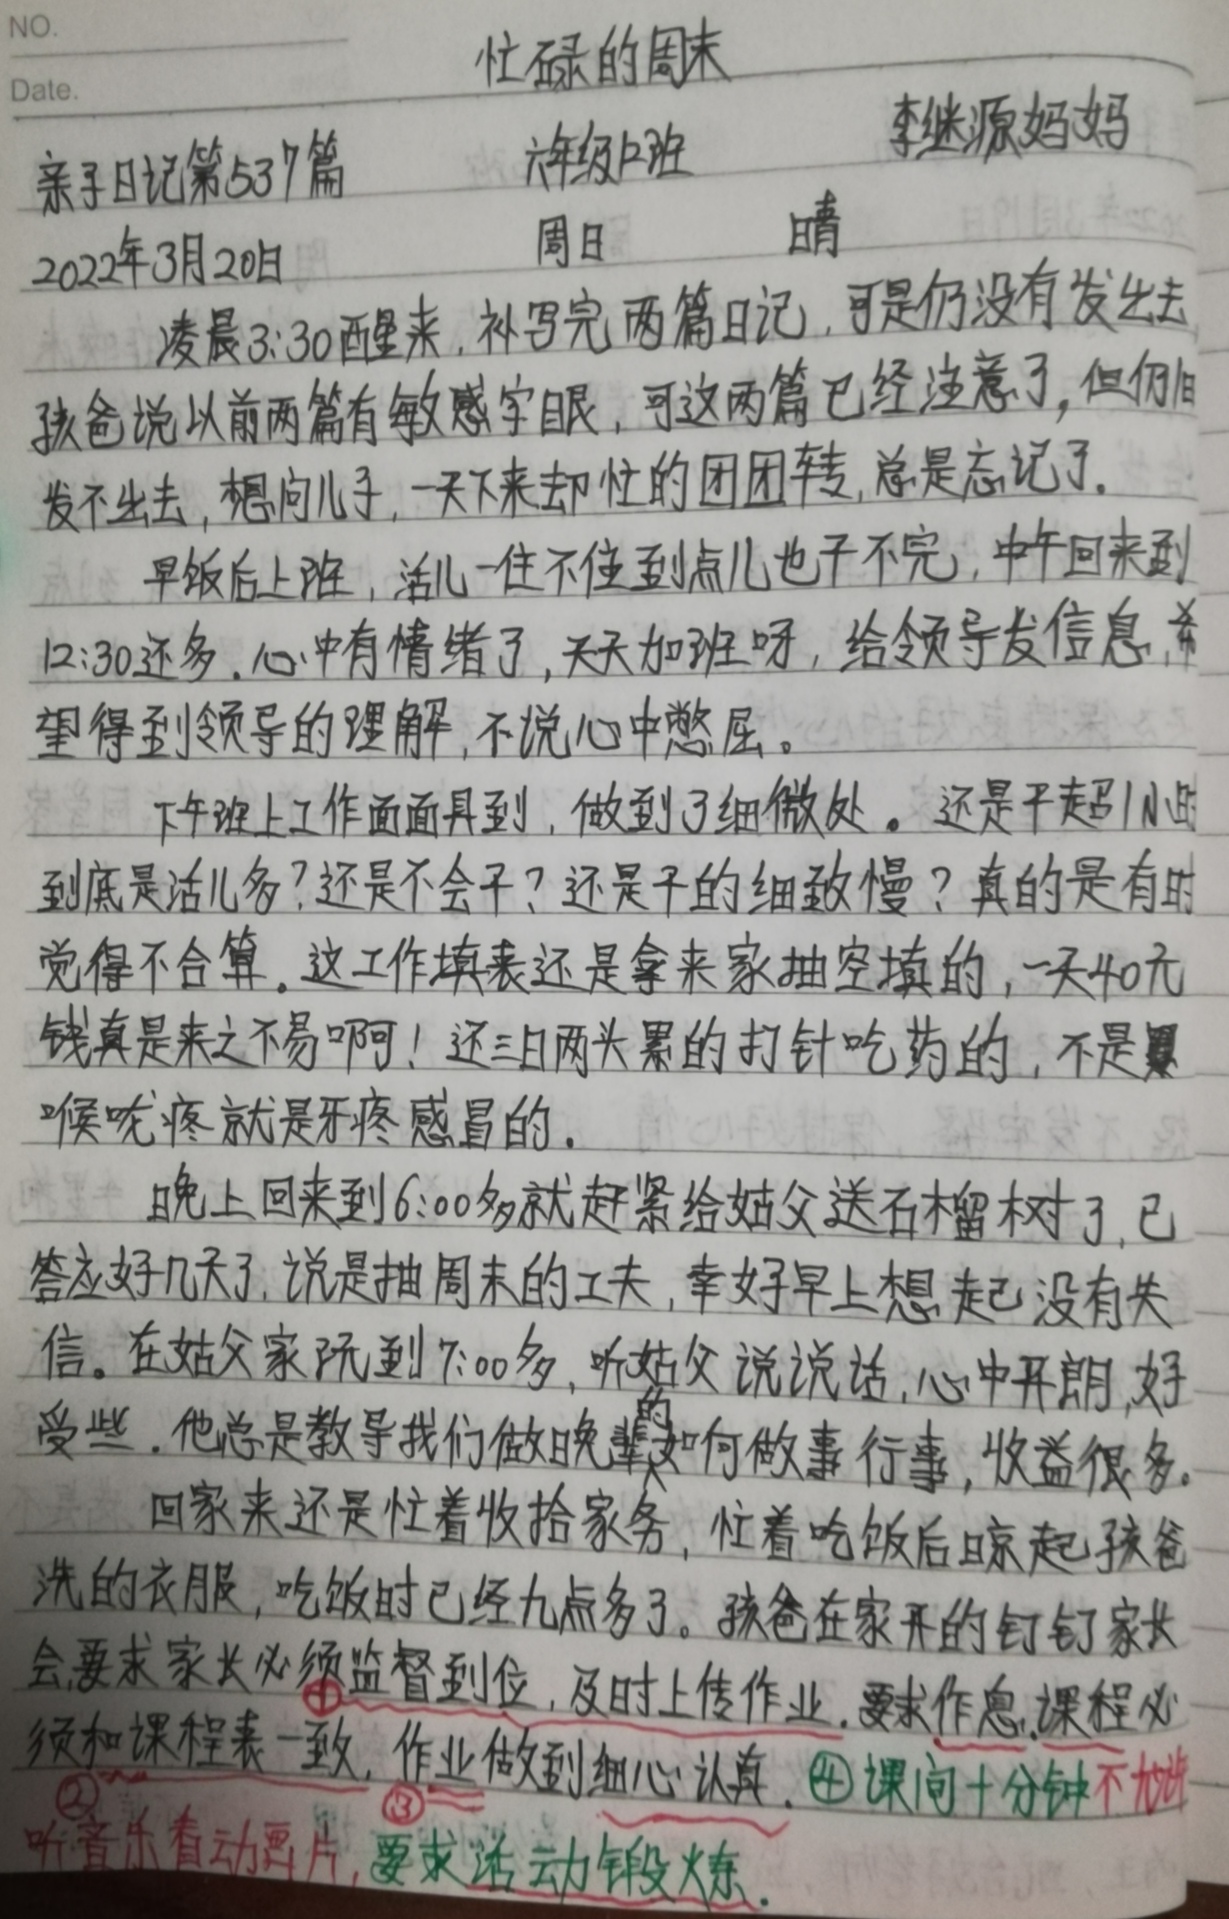 NO.
忙碌的周末
Date.
亲子日记第537篇 六年级12班 李继源妈妈
2022年3月20日 周日 晴
凌晨3:30醒来,补写完两篇日记,可是仍没有发出去
孩爸说以前两篇有敏感字眼,可这两篇已经注意了,但仍旧
发不出去,想问儿子,一天下来却忙的团团转,总是忘记了.
早饭后上班,活儿一住不住到点儿也干不完,中午回来到
12:30还多.心中有情绪了,天天加班呀,给领导发信息,希
望得到领导的理解,不说心中憋屈。
下午班上工作面面具到,做到了细微处。还是干超1小时
到底是活儿多?还是不会干?还是干的细致慢?真的是有时
觉得不合算。这工作填表还是拿来家抽空填的,一天40元
钱真是来之不易啊!还三日两头累的打针吃药的,不是
喉咙疼就是牙疼感冒的.
晚上回来到6:00多就赶紧给姑父送石榴树了,已
答应好几天了,说是抽周末的工夫,幸好早上想起没有失
信。在姑父家玩到7:00多,听姑父说说话,心中开朗,好
受些.他总是教导我们做晚辈的如何做事行事,收益很多.
回家来还是忙着收拾家务,忙着吃饭后晾起孩爸
洗的衣服,吃饭时已经九点多了。孩爸在家开的钉钉家长
会,要求家长必须监督到位,及时上传作业.要求作息.课程必
①
须和课程表一致,作业做到细心认真.④课间十分钟不允许
② ③
听音乐看动画片,要求活动锻炼.